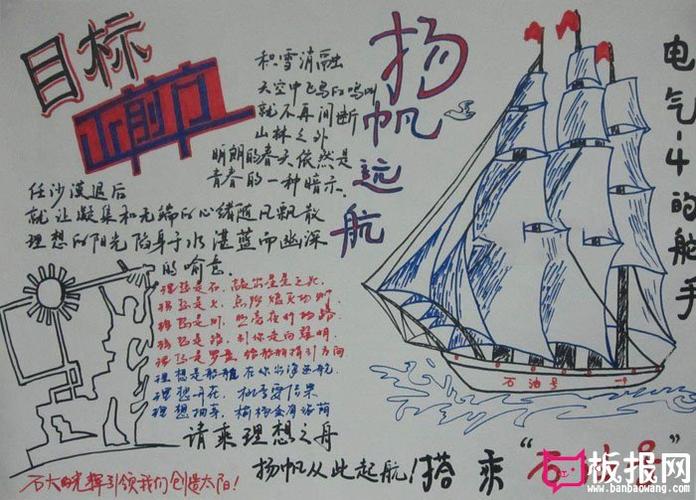 目标
正前方
积雪消融
天空中飞鸟的鸣叫
就不再间断
山林之外
明朗的春天依然是
青春的一种暗示.
任沙漠退后
就让凝集和无端的心绪随风飘散
理想的阳光陷身于水湛蓝而幽深
的喻意.
扬帆远航
电气-4的舵手
理想是石,敲出星星之火.
理想是火,点燃熄灭的灯.
理想是灯,照亮夜行的路
理想是路,引你走向黎明.
理想是罗盘,给船舶指引方向
理想是船舶,在你出海远航.
理想开花,
理想抽芽,
石油号
请乘理想之舟
扬帆从此起航!
搭乘
石大的光辉引领我们创造太阳!
板报网
www.banbaowang.com